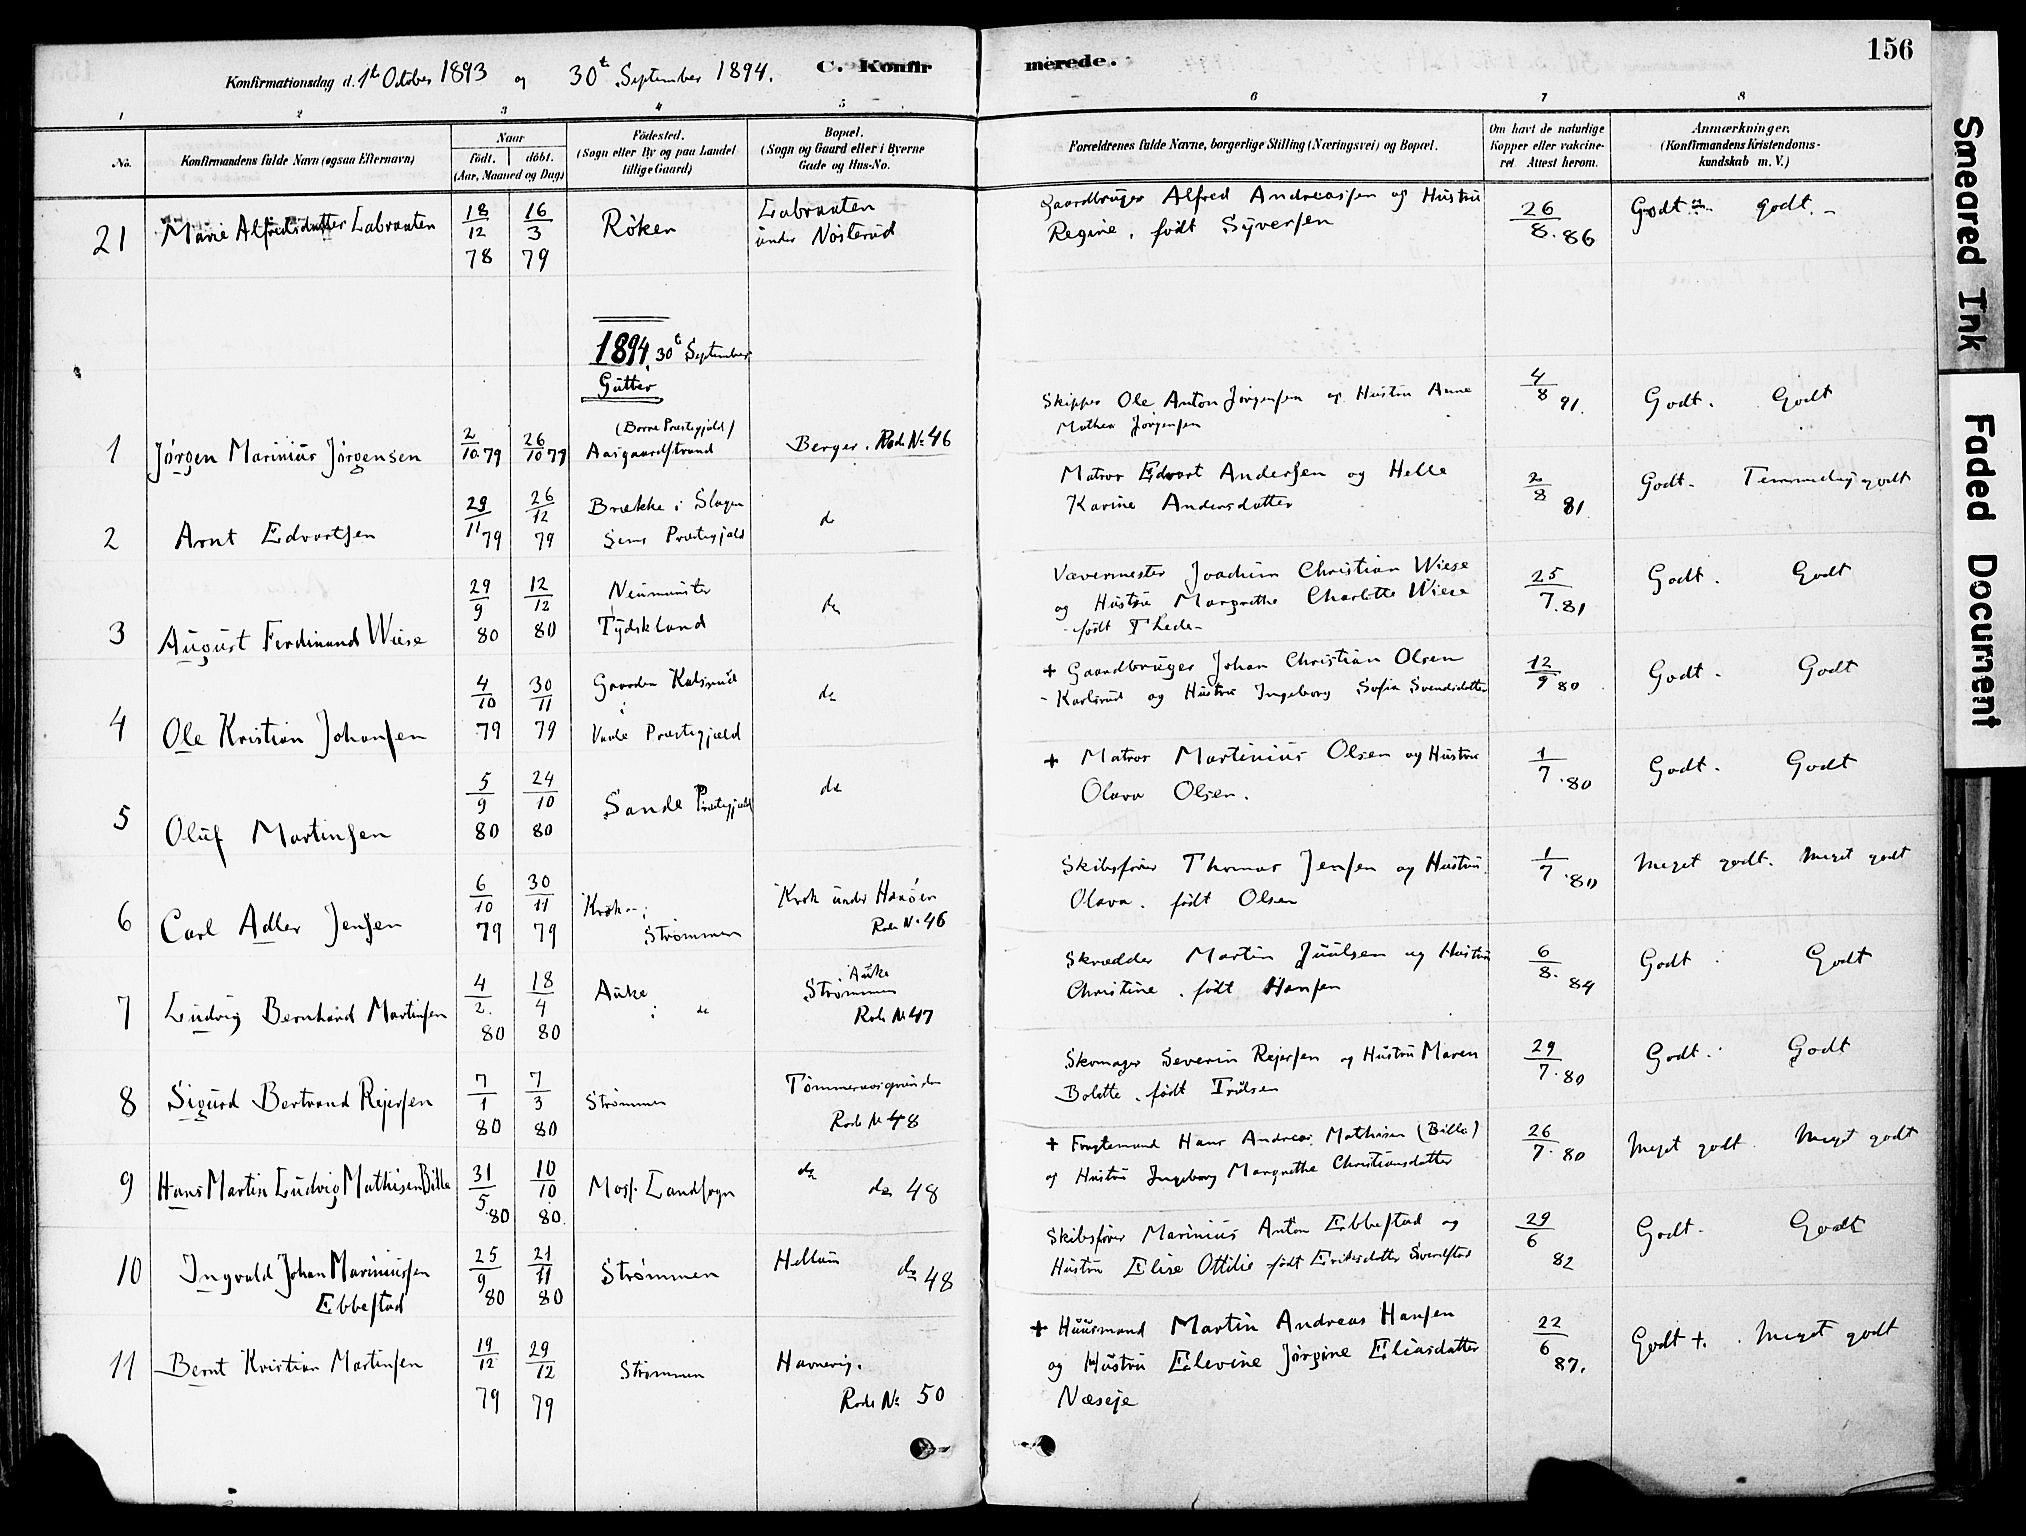 156
Konfirmationsdag d. 1te October 1893 og 30t September 1894. C. Konfirmerede.
1 2 3 4 5 6 7 8
No. Konfirmandens fulde Navn (ogsaa Efternavn)
Naar født. døbt. (Aar, Maaned og Dag)
Fødested. (Sogn eller By og paa Landet tillige Gaard)
Bopæl. (Sogn og Gaard eller i Byerne Gade og Hus-No.
Forældrenes fulde Navne, borgerlige Stilling (Næringsvei) og Bopæl.
Om havt de naturlige Kopper eller vaccineret. Attest herom.
Anmærkninger. (Konfirmandens Kristendomskundskab m. V.)
21 Marie Alfredsdatter Labraaten 18/12 78 16/3 79 Röken Labraaten under Nösterud
Gaardbruger Alfred Andreassen og Hustru Regine, født Syversen 26/8. 86 Godt godt.
1894. 30t September
Gutter
1 Jörgen Marinius Jörgensen 2/10 79 26/10 79 (Borre Præstegjeld) Aasgaardstrand Berger. Rode No 46
Skipper Ole Anton Jørgensen og Hustru Anne Mathea Jørgensen 4/8 91. Godt. Godt
2 Arnt Edvartsen 29/11 79 26/12 79 Brække i Slagen Sems Præstegjeld do
Matros Edvart Andersen og Helle Karine Andersdatter 2/8 81 Godt. Temmelig godt
3 August Ferdinand Wiese 29/9 80 12/12 80 Neumünster Tydskland do
Vævermester Joachim Christian Wiese og Hustru Margrethe Charlotte Wiese født Thede 25/7. 81 Godt. Godt
4 Ole Kristian Johansen 4/10 79 30/11 79 Gaarden Kalsrud i Vaale Præstegjeld do
+ Gaardbruger Johan Christian Olsen Karlsrud og Hustru Ingeborg Sofie Svendsdatter 12/9 80 Godt. Godt
5 Oluf Martinsen 5/9 80 24/10 80 Sande Præstegjeld do
+ Matros Martinius Olsen og Hustru Olava Olsen. 1/7. 80 Godt. Godt
6 Carl Adler Jensen 6/10 79 30/11 79 Krok i Strømmen Krok under Hanöen Rode No 46
Skibsfører Thomas Jensen og Hustru Olava. født Olsen 1/7. 80 Meget godt. Meget godt
7 Ludvig Bernhard Martinsen 4/2. 80 18/4 80 Auke i do Auke Strømmen Rode No 47
Skrædder Martin Juulsen og Hustru Christine. født Hansen 6/8. 84 Godt Godt
8 Sigurd Bertrand Rejersen 7/1 80 7/3 80 Strømmen Rode No 48
Skomager Severin Rejersen og Hustru Maren Bolette. født 29/7. 80 Godt. Godt
9 Hans Martin Ludvig Mathisen Bille 31/5. 80 10/10 80. Moss Landsogn do do 48
+ Fragtemand Hans Andreas Mathisen (Bille) og Hustru Ingeborg Margrethe Christiansdatter 26/7. 80 Meget godt. Meget godt
10 Ingvald Johan Mariniussen Ebbestad 25/9 80 21/11 80 Strømmen Hellum do 48
Skibsfører Marinius Anton Ebbestad og Hustru Elise Ottilie født Eriksdatter 29/6 82 Godt. Godt
11 Bernt Kristian Martinsen 19/12 79 29/12 79 Strømmen Havnevig. Rode No 50
+ Huusmand Martin Andreas Hansen og Hustru Elevine Jörgine Eliasdatter Næseje 22/6 87. Godt +. Meget godt
Smeared Ink
Faded Document